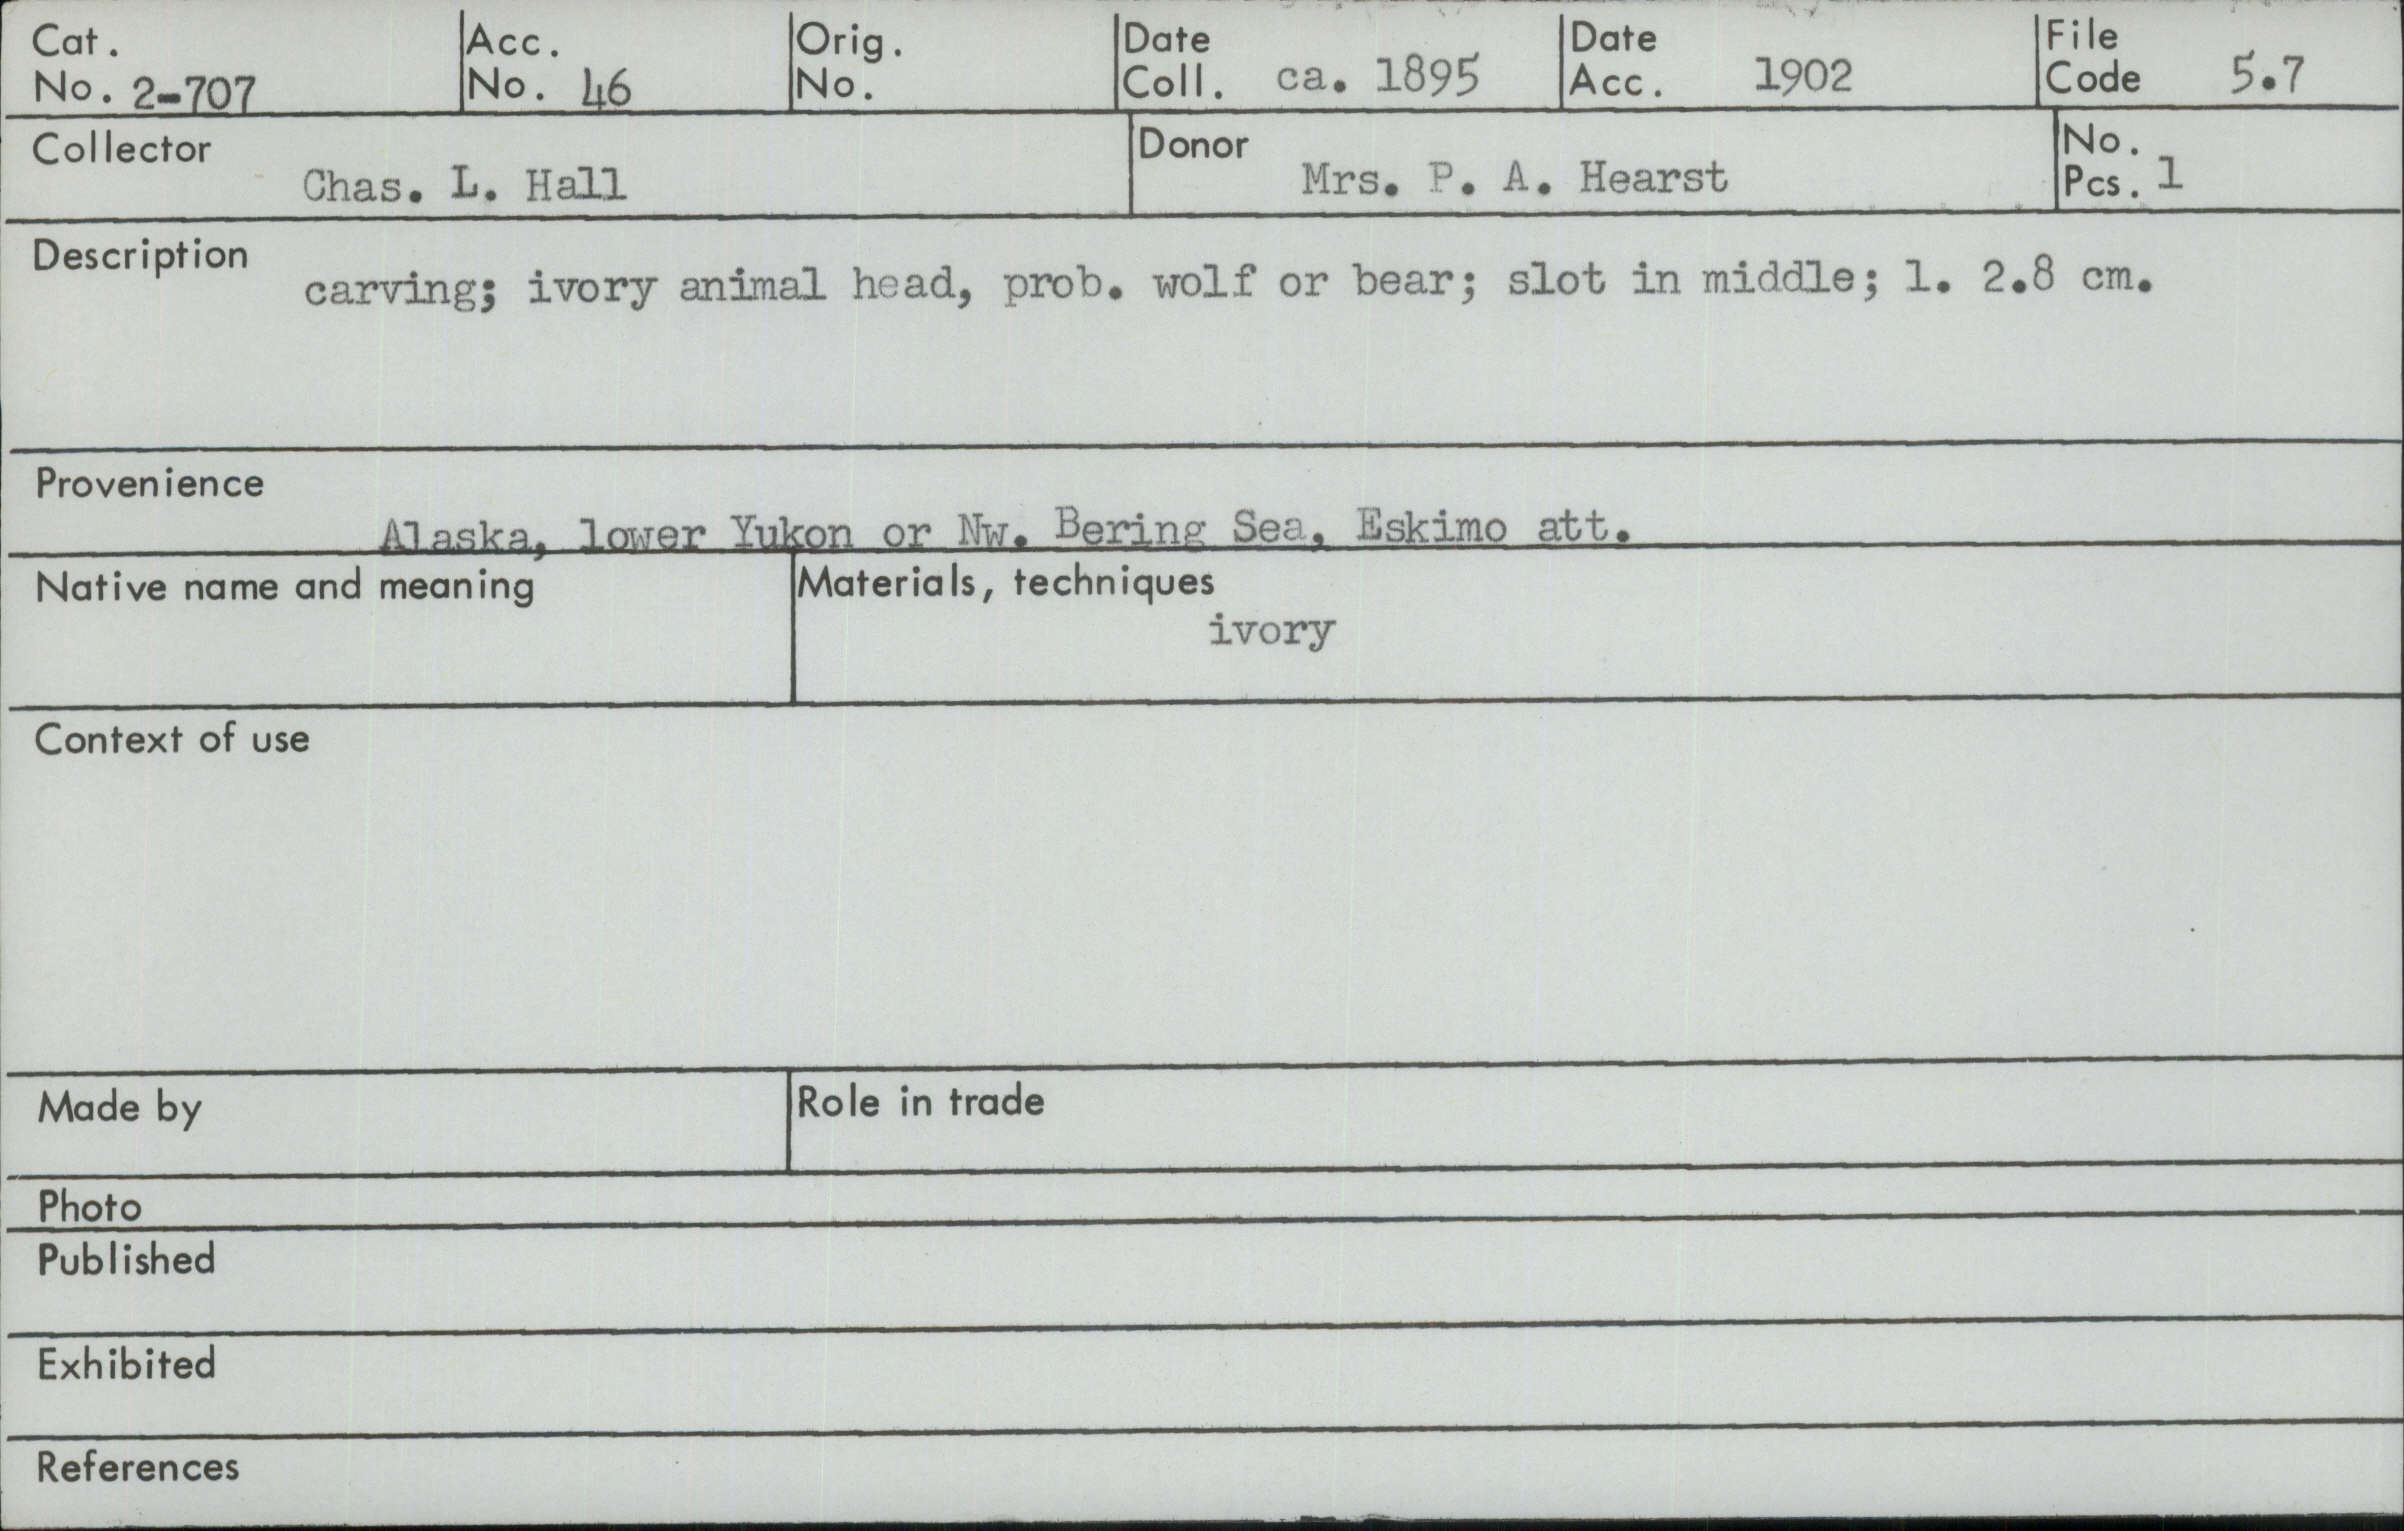 Cat. Acc. Orig. Date Date File
No. 2-707 No. 46 No. Coll. ca. 1895 Acc. 1902 Code 5.7
Collector Donor No.
Chas. L. Hall Mrs. P. A. Hearst Pcs. 1
Description
carving; ivory animal head, prob. wolf or bear; slot in middle; l. 2.8 cm.
Provenience
Alaska, lower Yukon or Nw. Bering Sea, Eskimo att.
Native name and meaning Materials, techniques
ivory
Context of use
Made by Role in trade
Photo
Published
Exhibited
References